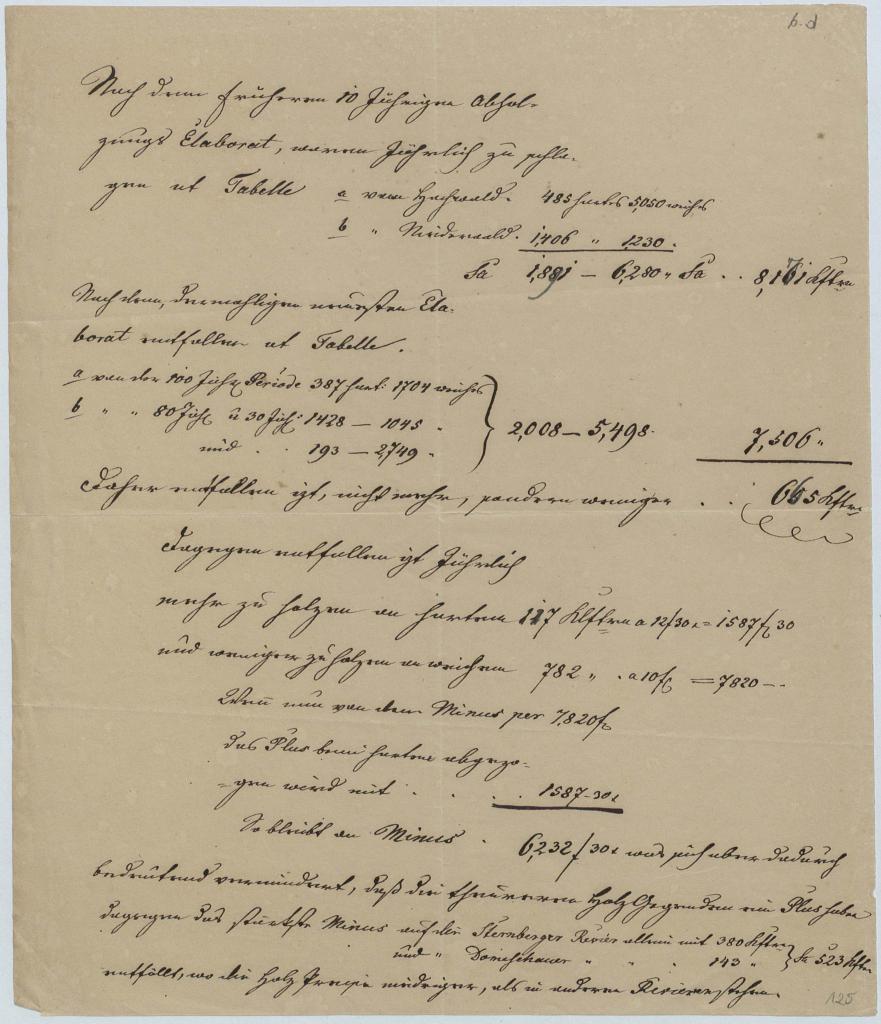 6. d
Nach dem früheren 10 Jährigen Abhol-
zungs Elaborat, waren Jährlich zu schla-
gen ut Tabelle a vom Hochwald. 485 hartes 5,050 weiches
b " Niederwald. 1,406 " 1230.
Sa 1,891 — 6,280 " Sa . . 8,171 Kftrn
Nach dem, dermahligen neuesten Ela-
borat entfallen ut Tabelle.
a von der 100 Jähr Periode 387 hart: 1704 weiches
b " " 80 Jäh u 30 Jäh: 1428 — 1045 "
und . . 193 — 2,749 "
2,008 — 5,498. 7,506 "
Daher entfallen izt, nicht mehr, sondern weniger . . 665 Kftrn
Dagegen entfallen izt Jährlich
mehr zu holzen an hartem 127 Klftrn a 12/30 x = 1587 f 30
und weniger zu holzen an weichem 782 " . a 10 f = 7820 — .
Wenn nun von dem Minus per 7,820 f
das Plus beim harten abgezo-
-gen wird mit . . . 1587-30 x
So bleibt an Minus . 6,232 f 30 x was sich aber dadurch
bedeutend vermindert, daß die theureren Holz Gegenden ein Plus haben
dagegen das stärkste Minus auf die Sternberger Revier allein mit 380 Kftrn
und " Domeschauer " " " 143 " Sa 523 Kftrn
entfällt, wo die Holz Preise niedriger, als in anderen Revieren stehen.
125